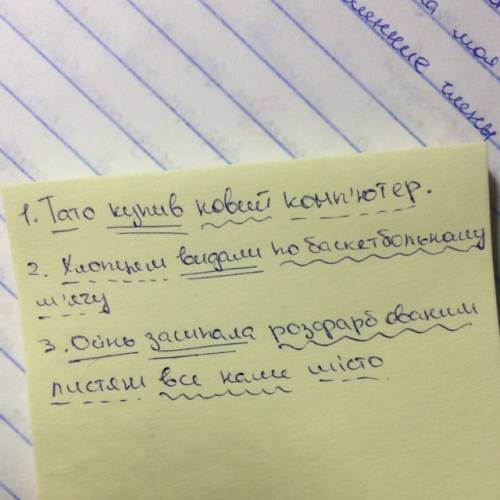 на моя
менние члены
1. Тато купив новий комп'ютер.
2. Хлопцям видали по баскетбольному
м'ячу
3. Осінь засипала розфарбованим
листям все наше місто